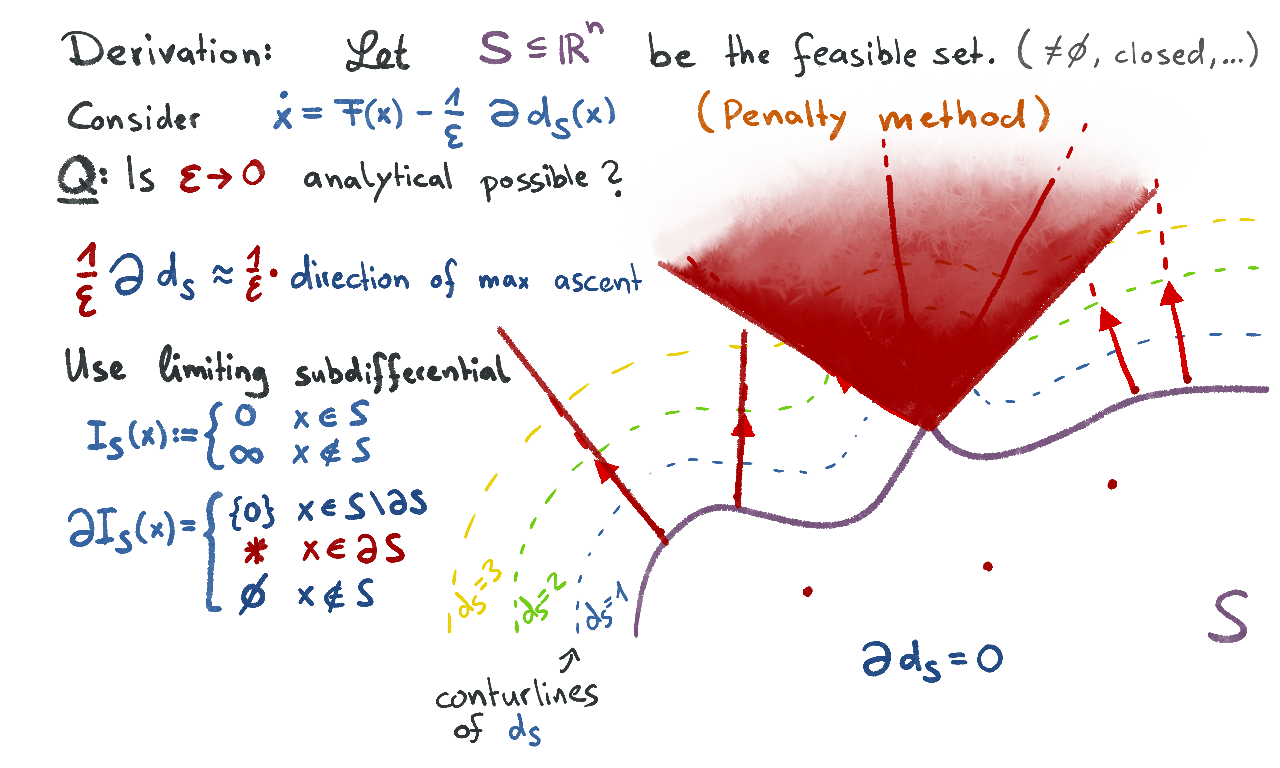 Derivation: Let S ⊆ ℝⁿ be the feasible set. (≠∅, closed,...)
Consider ẋ = F(x) - 1/ε ∂ d_S(x) (Penalty method)
Q: Is ε → 0 analytical possible?
1/ε ∂ d_S ≈ 1/ε · direction of max ascent
Use limiting subdifferential
I_S(x) := { 0 x ∈ S
∞ x ∉ S
∂I_S(x) = { {0} x ∈ S \ ∂S
* x ∈ ∂S
∅ x ∉ S
d_S=3
d_S=2
d_S=1
conturlines
of d_S
∂ d_S = 0
S